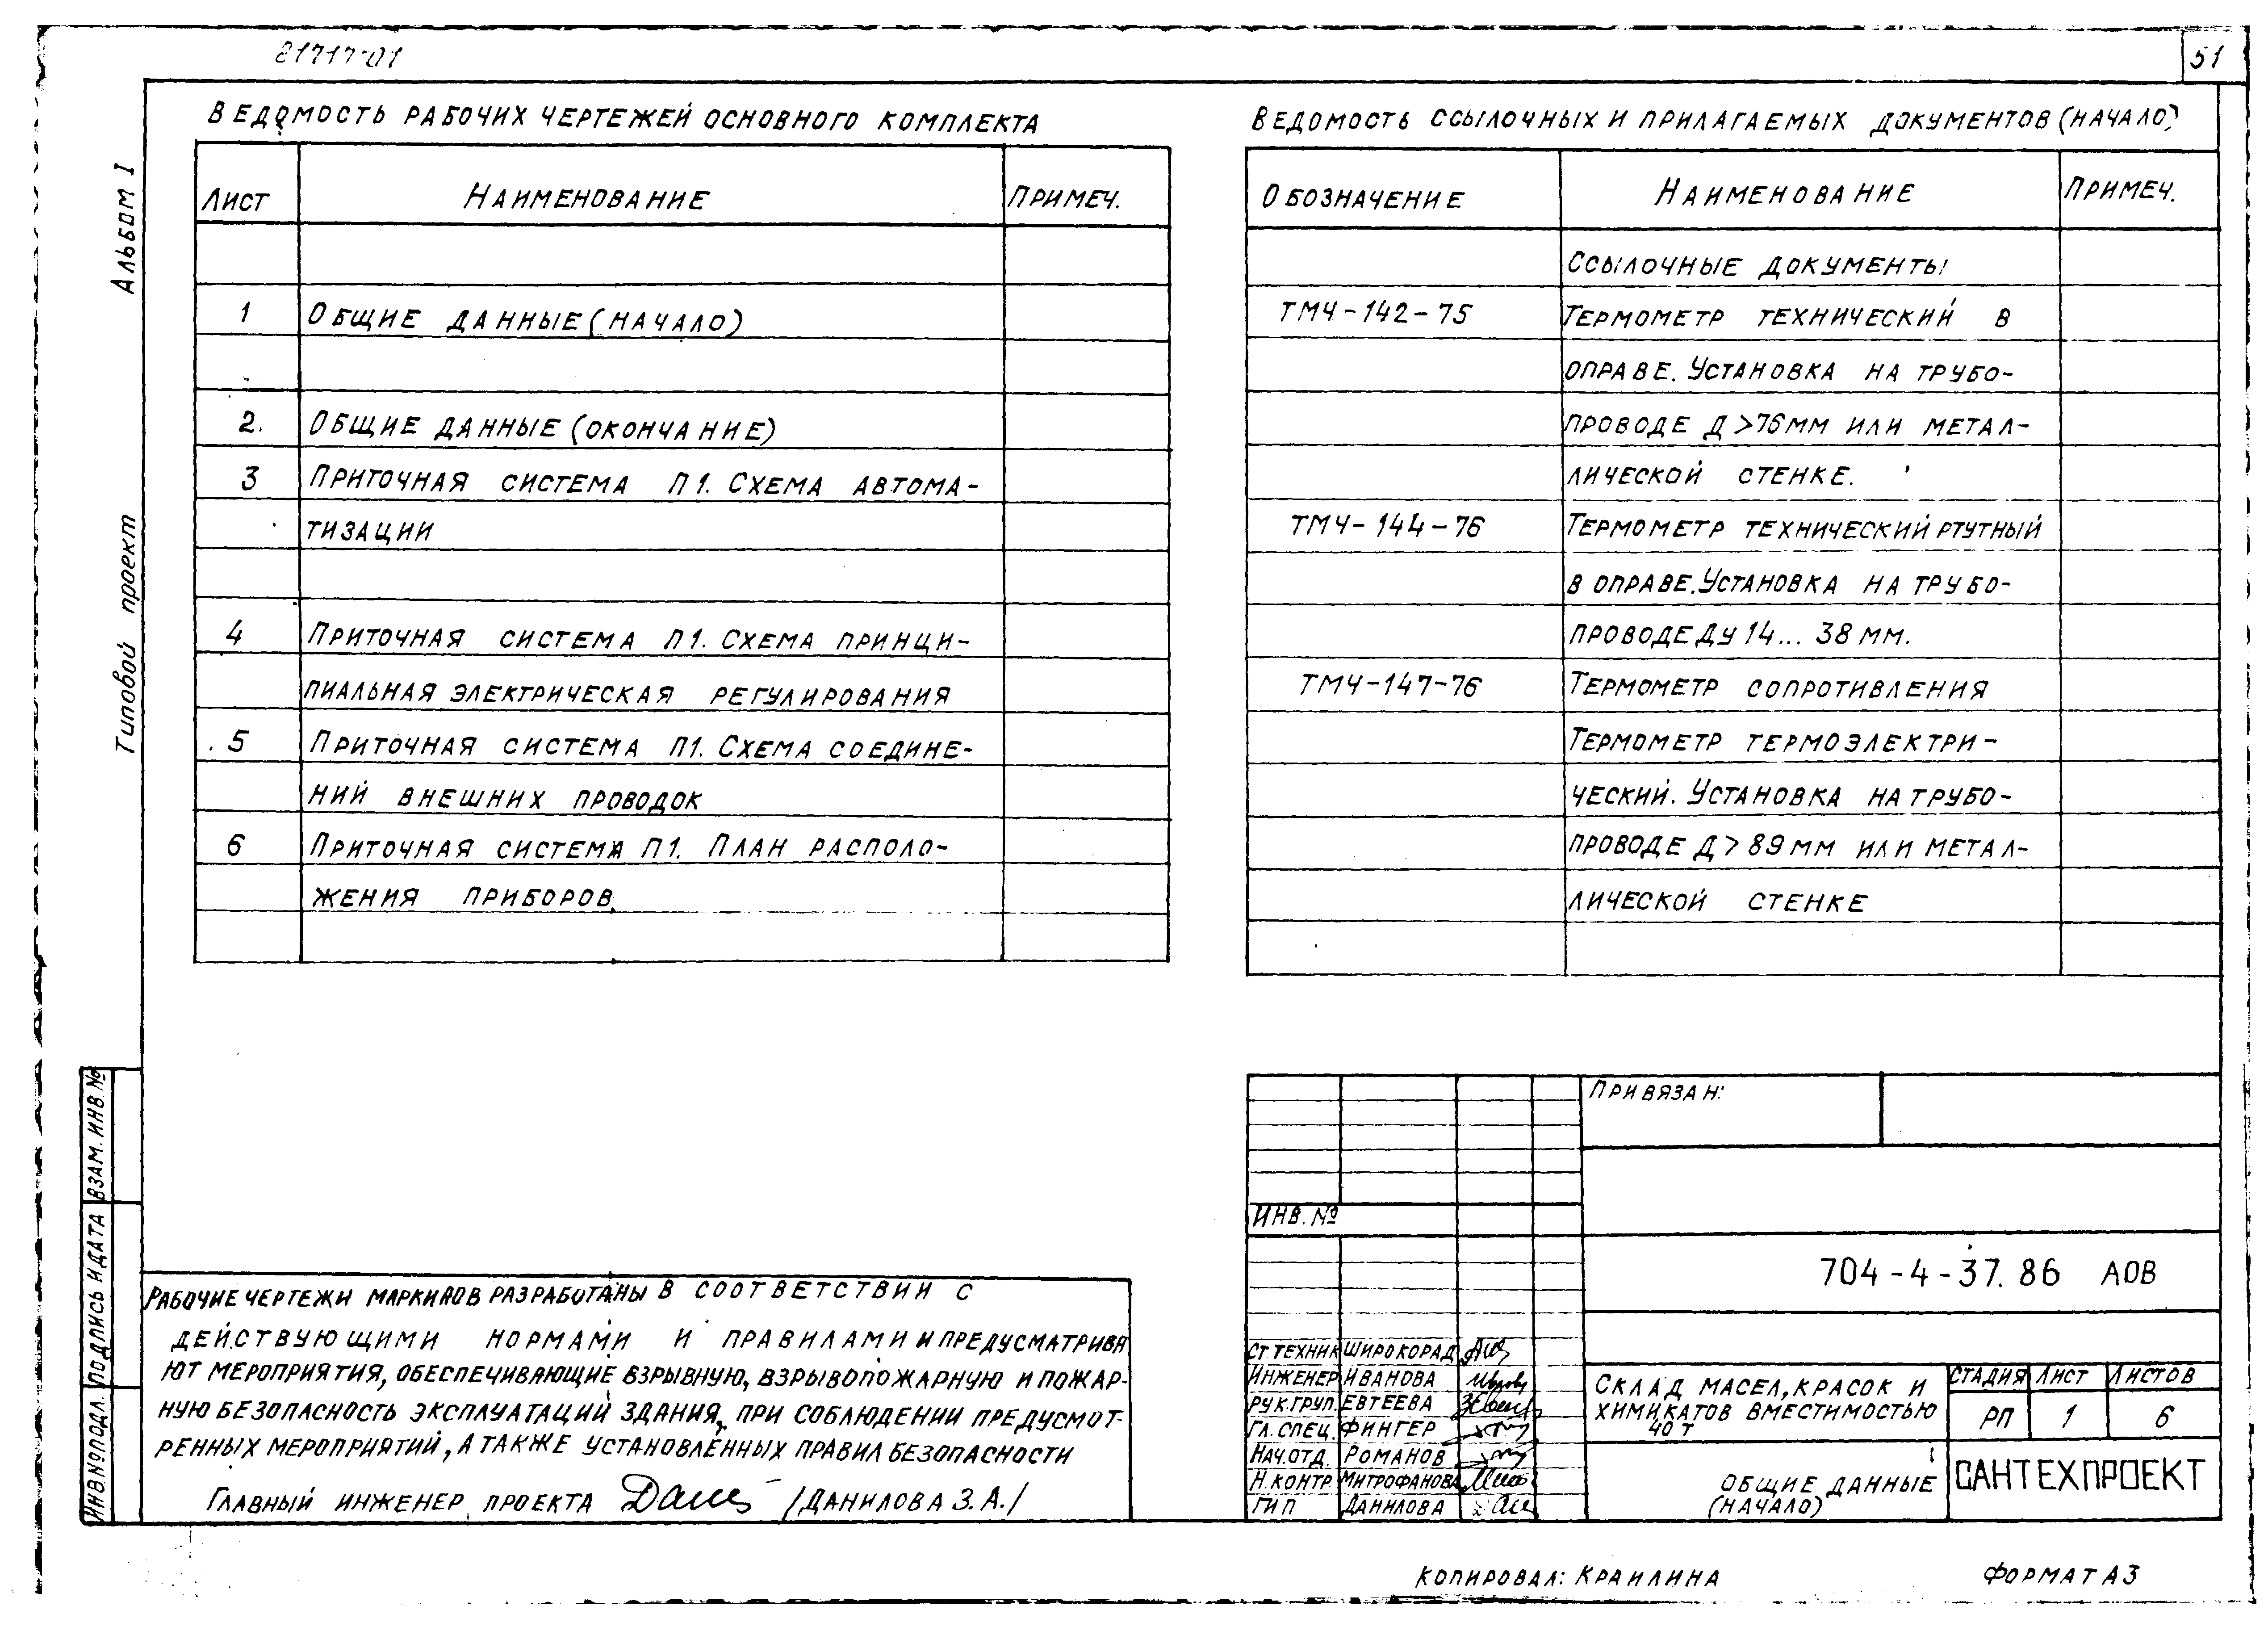 21717-01
51
Альбом I
Типовой проект
Ведомость рабочих чертежей основного комплекта
Лист Наименование Примеч.
1 Общие данные (начало)
2. Общие данные (окончание)
3 Приточная система П1. Схема автома-
тизации
4 Приточная система П1. Схема принци-
пиальная электрическая регулирования
5 Приточная система П1. Схема соедине-
ний внешних проводок
6 Приточная система П1. План располо-
жения приборов
Ведомость ссылочных и прилагаемых документов (начало)
Обозначение Наименование Примеч.
Ссылочные документы
ТМЧ-142-75 Термометр технический в
оправе. Установка на трубо-
проводе Д>76мм или метал-
лической стенке.
ТМЧ-144-76 Термометр технический ртутный
в оправе. Установка на трубо-
проводе Ду 14... 38 мм.
ТМЧ-147-76 Термометр сопротивления
Термометр термоэлектри-
ческий. Установка на трубо-
проводе Д>89мм или метал-
лической стенке
Инв№подл. Подпись и дата Взам. инв. №
Рабочие чертежи марки АОВ разработаны в соответствии с
действующими нормами и правилами и предусматрива
ют мероприятия, обеспечивающие взрывную, взрывопожарную и пожар-
ную безопасность эксплуатаций здания, при соблюдении предусмот-
ренных мероприятий, а также установленных правил безопасности
Главный инженер проекта /Данилова З.А./
Привязан:
Инв. №
704-4-37.86 АОВ
Ст техник Широкорад
Инженер Иванова
Рук.груп. Евтеева
Гл. спец. Фингер
Нач.отд. Романов
Н.контр Митрофанова
ГИП Данилова
Склад масел, красок и
химикатов вместимостью
40 т
Стадия Лист Листов
РП 1 6
Общие данные
(начало)
САНТЕХПРОЕКТ
Копировал: Краилина
Формат А3